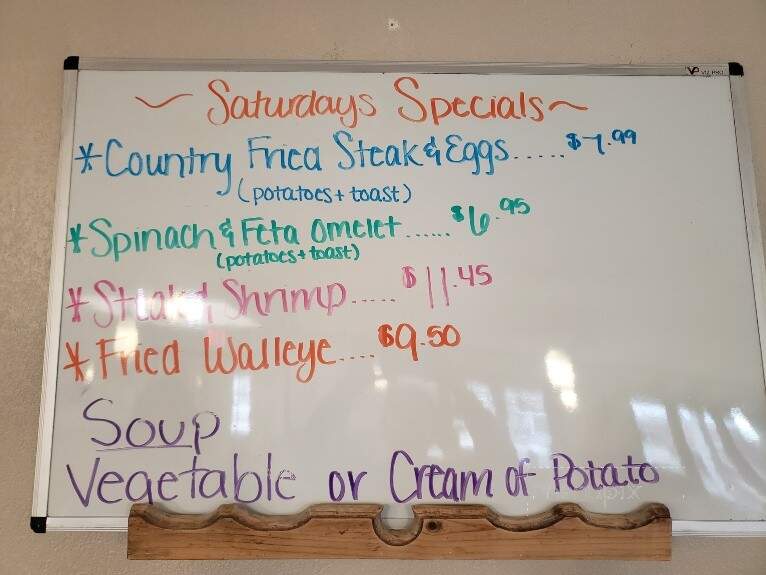 ~ Saturdays Specials ~
* Country Fried Steak & Eggs..... $7.99
(potatoes + toast)
* Spinach & Feta Omelet...... $6.95
(potatoes + toast)
* Steak & Shrimp..... $11.45
* Fried Walleye.... $9.50
Soup
Vegetable or Cream of Potato